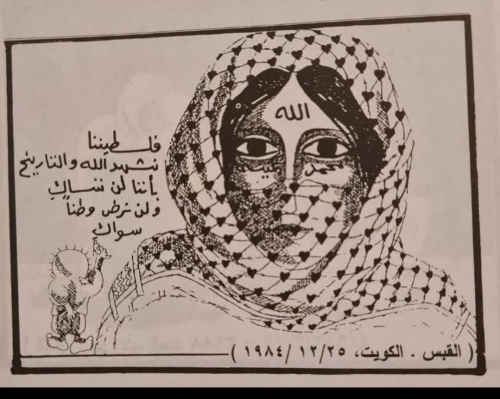 الله
محمد
فلسطيننا
نشهد الله والتاريخ
بأننا لن ننساكِ
ولن نرض وطناً
سواك
( القبس . الكويت، ١٢/٢٥/ ١٩٨٤ )